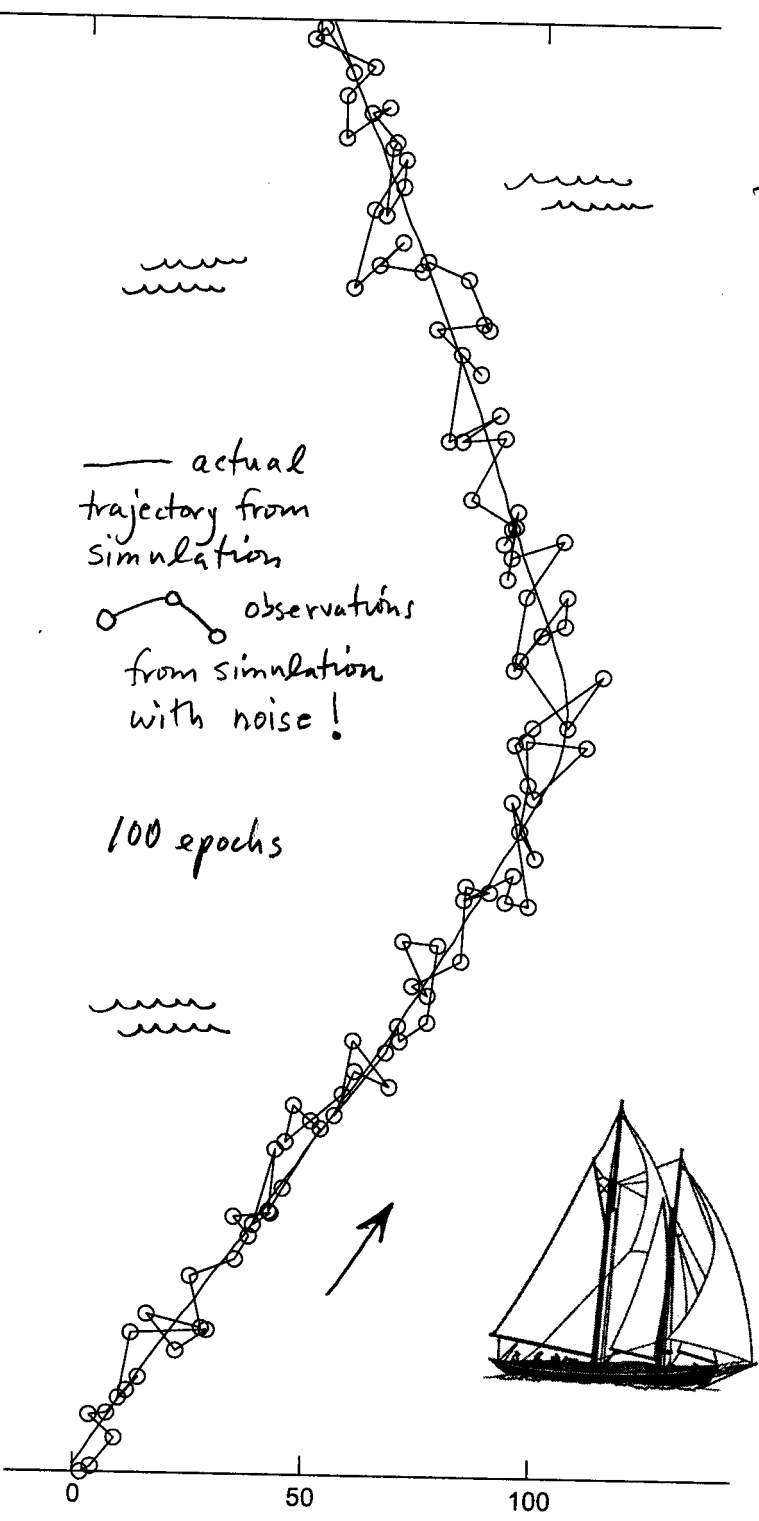 actual
trajectory from
simulation
observations
from simulation
with noise!
100 epochs
0 50 100